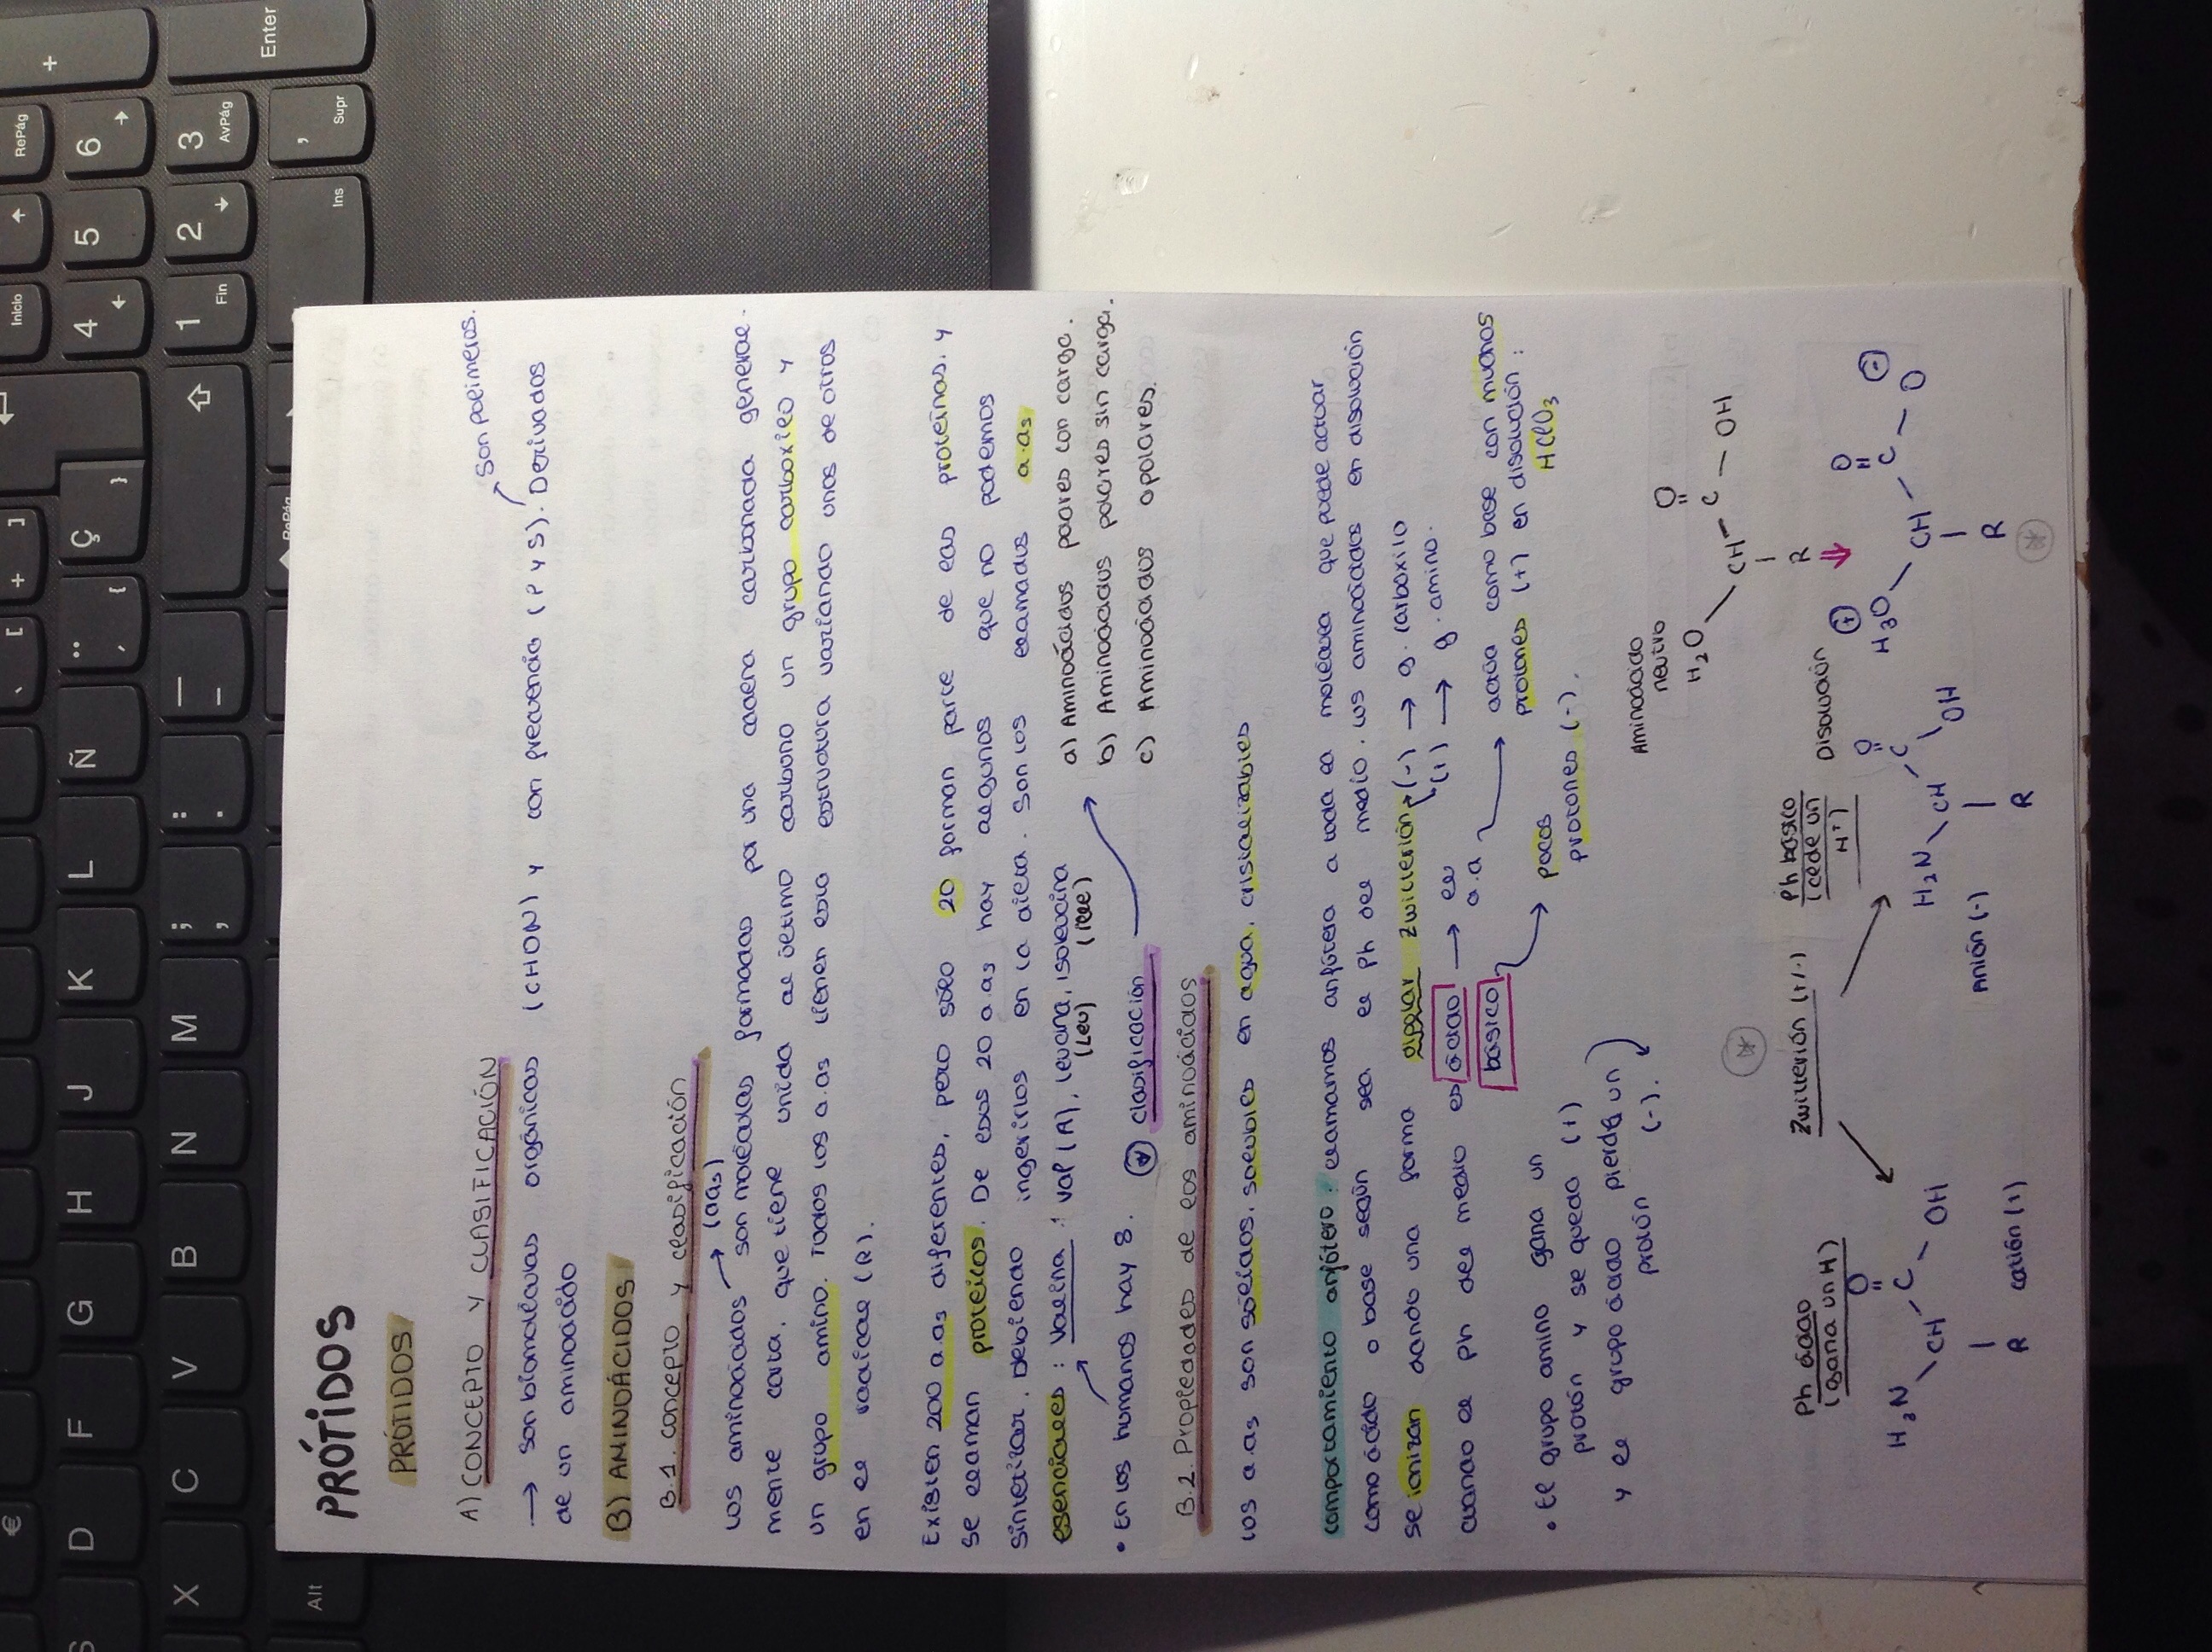 PRÓTIDOS
PRÓTIDOS
A) CONCEPTO Y CLASIFICACIÓN
Son polímeros.
→ Son biomoléculas orgánicas (CHON) y con frecuencia (P y S). Derivados
de un aminoácido
B) AMINOÁCIDOS
B.1. Concepto y clasificación
(aas)
Los aminoácidos → son moléculas formadas por una cadena carbonada general-
mente corta, que tiene unida al último carbono un grupo carboxilo y
un grupo amino. Todos los a.as tienen esta estructura variando unos de otros
en el radical (R).
Existen 200 a.as diferentes, pero sólo 20 forman parte de las proteínas. y
se llaman proteicos. De esos 20 a.as hay algunos que no podemos
sintetizar, debiendo ingerirlos en la dieta. Son los llamados a.as
esenciales: Valina: Val (A), leucina, isoleucina
(Leu) (Ile)
• En los humanos hay 8.
* Clasificación
a) Aminoácidos polares con carga.
b) Aminoácidos polares sin carga.
c) Aminoácidos apolares.
B.2. Propiedades de los aminoácidos
Los a.as son sólidos, solubles en agua, cristalizables
Comportamiento anfótero: llamamos anfótera a toda la molécula que puede actuar
como ácido o base según sea el Ph del medio. Los aminoácidos en disolución
se ionizan dando una forma dipolar Zwitterión (-) → g. carboxilo
(+) → g. amino.
Cuando el ph del medio es ácido → el a.a → actúa como base con muchos
protones (+) en disolución:
HClO3
básico → pocos
protones (-).
• El grupo amino gana un
protón y se queda (+)
y el grupo ácido pierde un
protón (-).
Aminoácido
neutro
H2O
CH – C – OH
O
R
*
Zwitterión (+/-)
Disolución
H3O
+
CH
C – O
O
-
R
*
Ph ácido
(gana un H)
H3N
CH
C – OH
O
R
catión (+)
Ph básico
(cede un
H+)
H2N
CH
C
O
OH
R
Anión (-)
+
Enter
RePág
6
3
AvPág
,
Supr
5
2
Ins
Inicio
4
1
Fin
]
[
Ç
}
{
Ñ
L
K
J
H
G
F
D
S
;
:
M
N
B
V
C
X
€
Alt
RePág